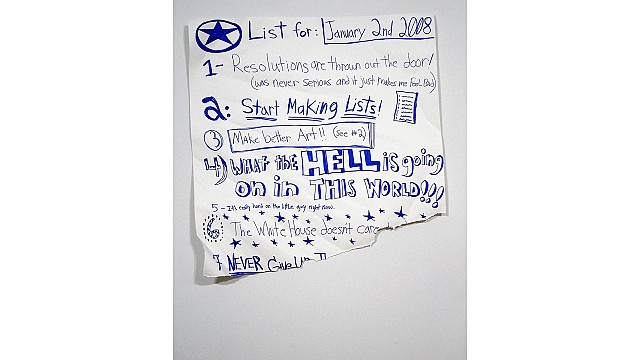 List for: January 2nd 2008
1- Resolutions are thrown out the door!
(was never serious and it just makes me feel bad)
2: Start Making Lists!
3) Make better Art!! (see #2)
4) WHAT the HELL is going
on in THIS WORLD!!!
5 - It's really hard on the little guy right now.
The White House doesn't care
7 NEVER Give Up